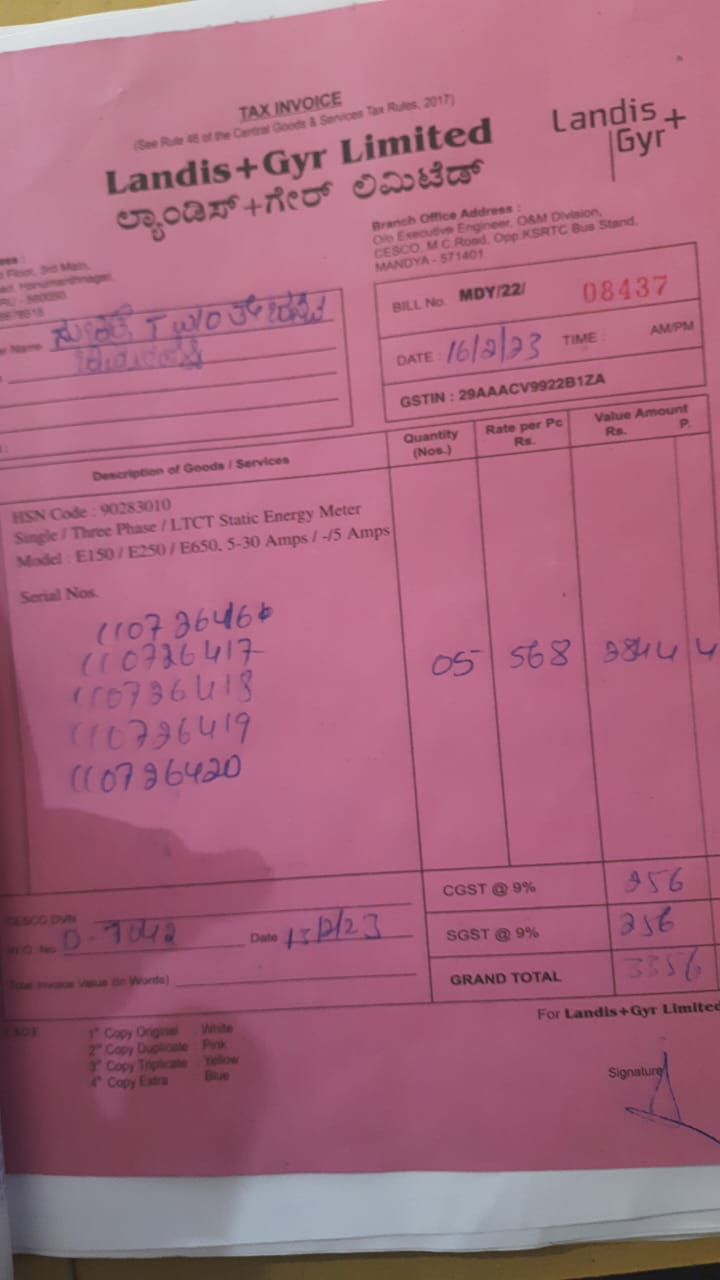 TAX INVOICE
(See Rule 46 of the Central Goods & Services Tax Rules, 2017)
Landis+Gyr Limited
ಲ್ಯಾಂಡಿಸ್+ಗೇರ್ ಲಿಮಿಟೆಡ್
Landis+
Gyr
Floor, 3rd Main,
Hanumanthnagar,
Branch Office Address :
O/o Executive Engineer, O&M Division,
CESCO, M.C.Road, Opp:KSRTC Bus Stand,
MANDYA - 571401.
Name
BILL No. MDY/22/ 08437
DATE : 16/2/23 TIME : AM/PM
GSTIN : 29AAACV9922B1ZA
Description of Goods / Services
Quantity (Nos.)
Rate per Pc Rs.
Value Amount Rs. P.
HSN Code : 90283010
Single / Three Phase / LTCT Static Energy Meter
Model : E150 / E250 / E650, 5-30 Amps / -/5 Amps
Serial Nos.
110726417
110726418
110726419
110726420
05 568 2844
CGST @ 9% 256
SGST @ 9% 256
GRAND TOTAL 3356
CESCO DVN
W.O. No. D-7042 Date 15/2/23
Total Invoice Value (in Words)
1st Copy Original White
2nd Copy Duplicate Pink
3rd Copy Triplicate Yellow
4th Copy Extra Blue
For Landis+Gyr Limited
Signature